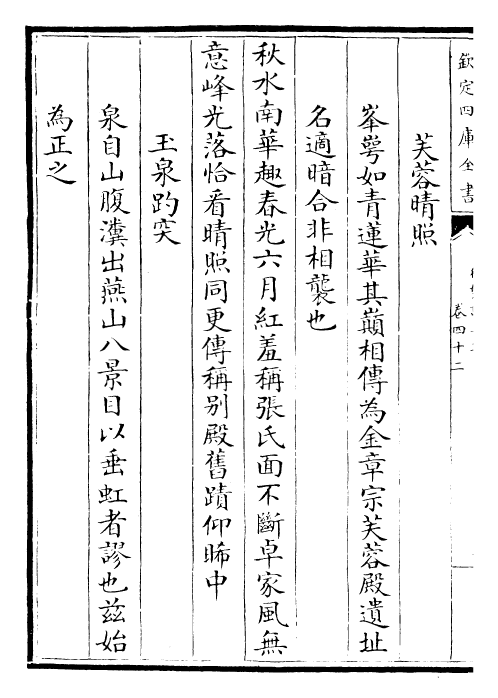 欽定四庫全書
卷四十二
芙蓉晴照
峯萼如青蓮華其巔相傳為金章宗芙蓉殿遺址
名適暗合非相襲也
秋水南華趣春光六月紅羞稱張氏面不斷卓家風無
意峰光落恰看晴照同更傳稱別殿舊蹟仰晞中
玉泉趵突
泉自山腹瀵出燕山八景目以垂虹者謬也兹始
為正之